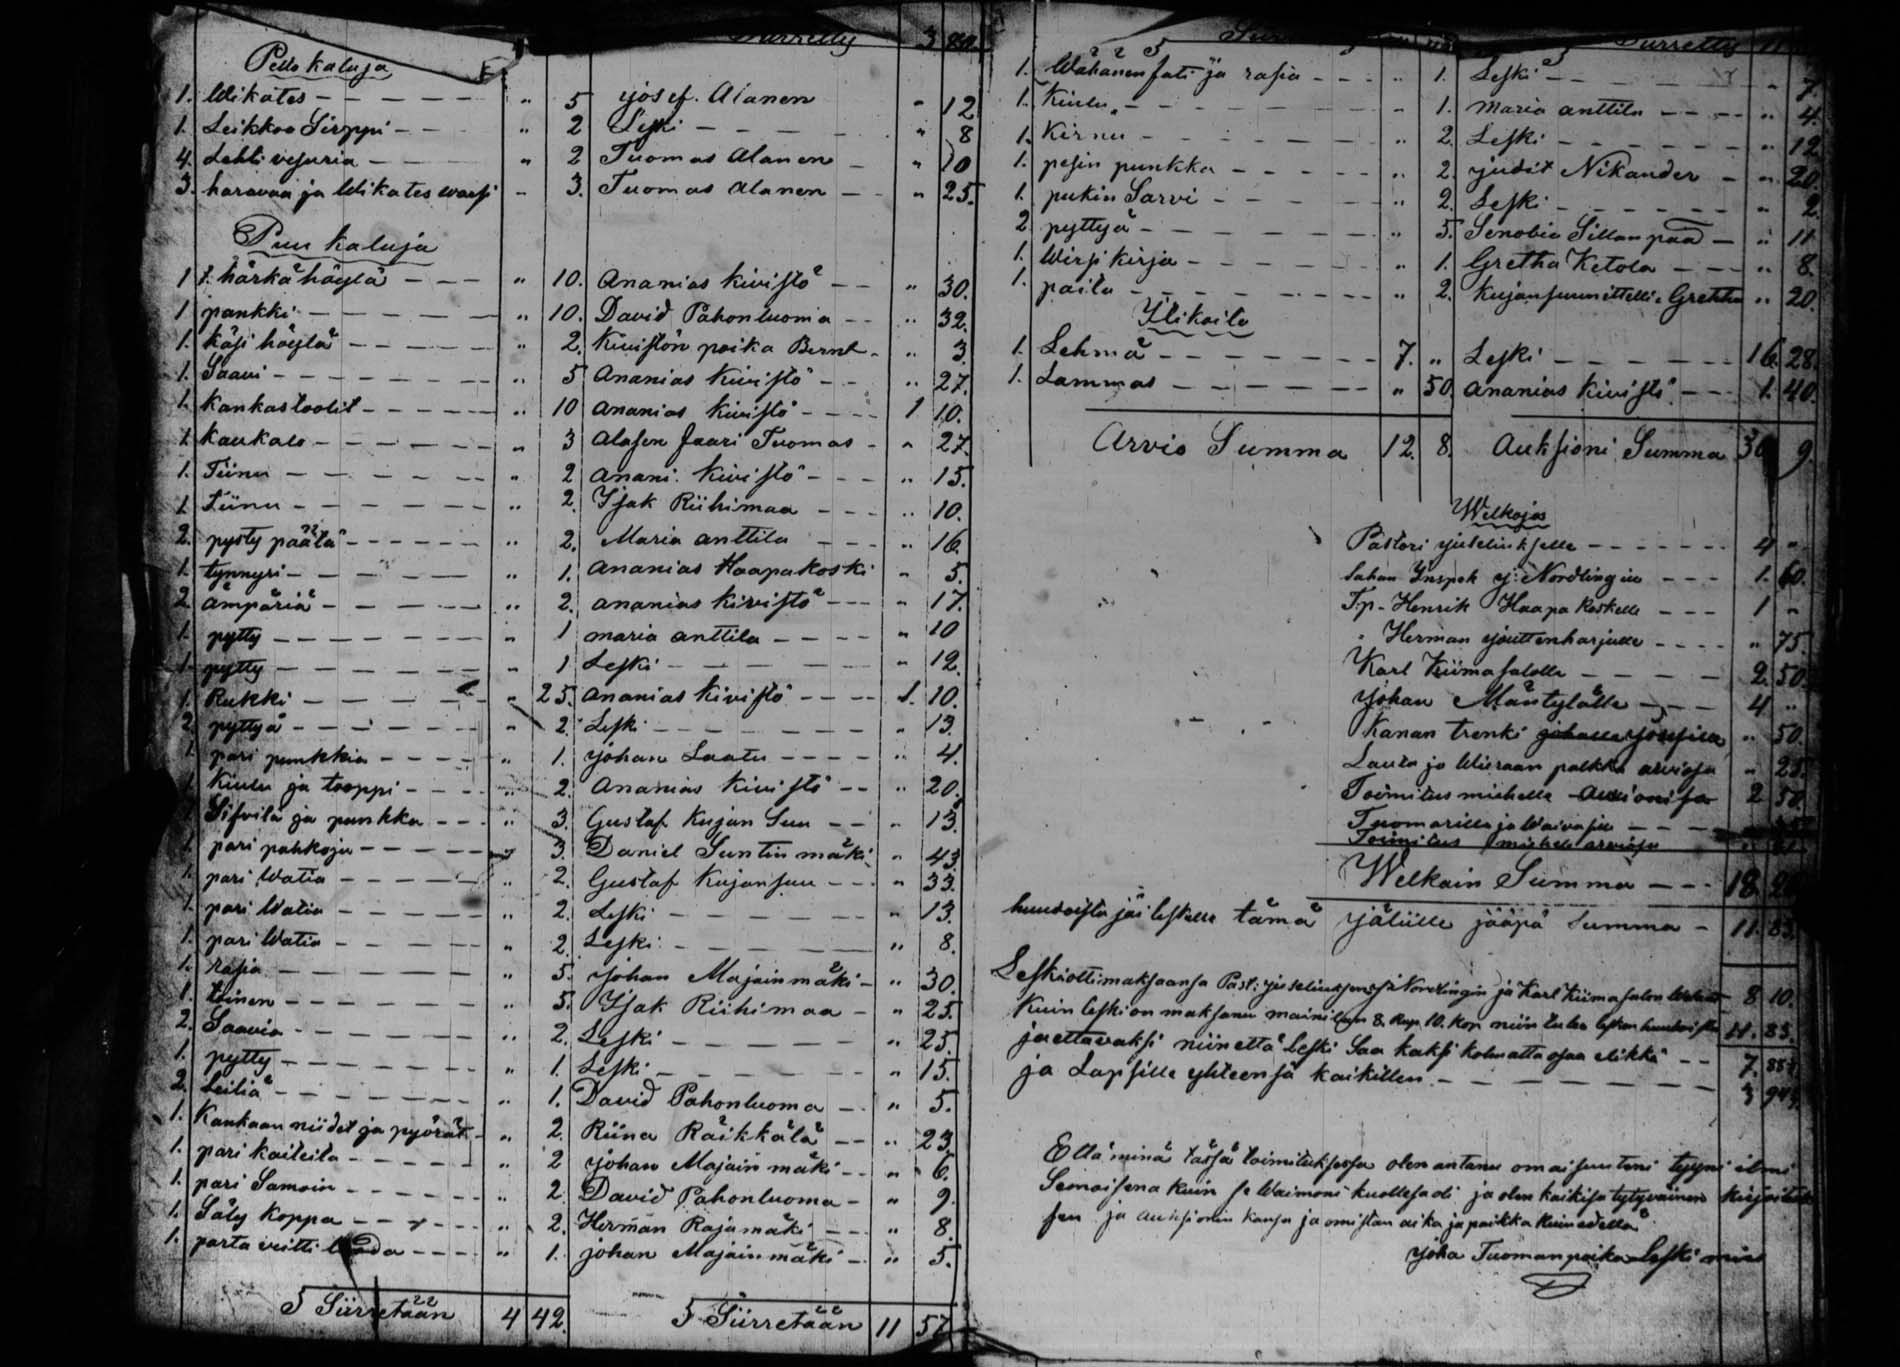 Siirretty 3
Pello kaluja
1. Wikates - - - " 5 Josef. Alanen " 12
1. Leikkoo Sirppi - - " 2 Leski - - - " 8
4. Lehti vesuria - - " 2 Tuomas Alanen - " 10
3. haravaa ja Wikates warsi " 3. Tuomas Alanen - " 25.
Puu kaluja
1 1. härkähöylä - - - " 10. Ananias Kivistö - - " 30.
1 pankki - - - " 10. David Pahonluoma - - " 32.
1. Käsi höylä - - - " 2. Kivistön poika Bernt - " 3.
1. Saavi - - - " 5 Ananias Kivistö - - " 27.
1. Kankastoolit - - - " 10 Ananias Kivistö - - - 1 10.
1. Kaukalo - - - " 3 Alasen Jaari Tuomas - " 27.
1. Tiinu - - - " 2 Anani. Kivistö - - - " 15.
1 tiinu - - - " 2. Isak Riihimaa - - - " 10.
2. pysty päätä - - - " 2. Maria anttila - - - " 16.
1. tynnyri - - - " 1. Ananias Haapakoski " 5.
2. ämpäriä - - - " 2. ananias Kivistö - - - " 17.
1. pytty - - - " 1 maria anttila - - - " 10
1. pytty - - - " 1 Leski - - - " 12.
1. Rukki - - - " 25. ananias Kivistö - - - 1. 10.
2. pyttyä - - - " 2. Leski - - - " 13.
1. pari punkkia - - - " 1. Johan Laatu - - - " 4.
1 Kiulu ja tooppi - - - " 2. Ananias Kivistö - - " 20.
1. Sifvilä ja punkka - - - " 3. Gustaf Kujan Suu - - " 13.
1. pari pahkoja - - - " 3. Daniel Suntin mäki " 43.
1. pari Watia - - - " 2. Gustaf Kujansuu - - - " 33.
1. pari Watia - - - " 2. Leski - - - " 13.
1. pari Watia - - - " 2. Leski - - - " 8.
1. rasia - - - " 5. Johan Majainmäki - " 30.
1. toinen - - - " 5. Isak Riihimaa - " 25.
2. Saavia - - - " 2. Leski - - - " 25.
1. pytty - - - " 1. Leski - - - " 15.
2. Leiliä - - - " 1. David Pahonluoma - - " 5.
1. Kankaan niidet ja pyörät - " 2. Riina Räikkälä - - " 23.
1. pari kaiteita - - - " 2 Johan Majain mäki - - " 6.
1. pari Samoin - - - " 2. David Pahonluoma - " 9.
1. Säly Koppa - - - " 2. Herman Rajamäki - - " 8.
1. parta veitti - - - " 1. Johan Majainmäki - " 5.
Siirretään 4 42. Siirretään 11 57
Siirretty 11
1. Wähänen sati ja rasia - - - " 1. Leski - - - " 7.
1. Kiulu - - - " 1. Maria anttila - - - " 4.
1. Kirnu - - - " 2. Leski - - - " 12
1. pesin punkka - - - " 2. Judit Nikander - " 20.
1. pukin Sarvi - - - " 2. Leski - - - " 2.
2 pyttyä - - - " 5. Senobia Sillanpää - " 11
1. Wirsi kirja - - - " 1. Gretha Ketola - - - " 8.
1. paita - - - " 2. Kujansuun Gretha " 20.
1. Lehmä - - - 7. " Leski - - - 16. 28.
1. Lammas - - - " 50. Ananias Kivistö - - - 1. 40.
Arvio Summa 12. 8. Auksioni Summa 30 9.
Welkojas
Pastori Juseliukselle - - - 4 "
Sahan Inspek J: Nordlingiu - - - 1. 60.
T.p. Henrik Haapa Koskelle - - - 1 "
" Herman Jouttenharjulle - - - " 75.
Karl Kiimasalolle - - - 2. 50.
Johan Mäntylälle - - - 4 "
Kanan trenki " 50.
Lauta ja Wieraan palkka arviosa " 25.
Toimitus miehelle Auxionisa 2 50.
Tuomarille ja Waivasille - - -
Toimitus miehelle arviosa
Welkain Summa - - - 18.
huudoista jäi leskelle tämä Jälille jääpä summa - 11. 83.
Leski otti maksaansa Past: Juseliuksen J: Nordlingin ja Karl Kiimasalon 8 10.
Kuin leski on maksanu mainitun 8. Rup. 10. Kop niin tulee lesken huudoista 11. 83.
jaettavaksi niin että Leski Saa kaksi kolmatta osaa elikkä - - 7.
ja Lapsille yhteensä kaikillen - - - 3
Että minä täsä toimituksesa olen antanu omaisuuteni tyyni ilmi
Semoisena kuin se Waimoni kuollesa oli ja olen kaikisa tytyväinen kirjoituk
sen ja auksionin kansa ja omistan aika ja paikka kuin edellä
Joha Tuomanpoika Leski mies